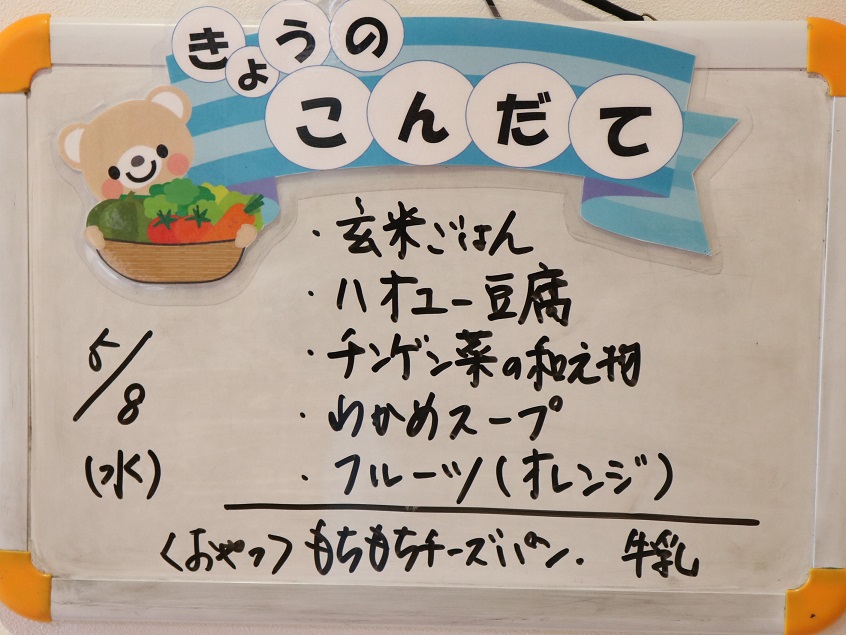 きょうの
こんだて
・玄米ごはん
・ハオユー豆腐
・チンゲン菜の和え物
・わかめスープ
5/8
(水)
・フルーツ(オレンジ)
〈おやつ〉もちもちチーズパン. 牛乳